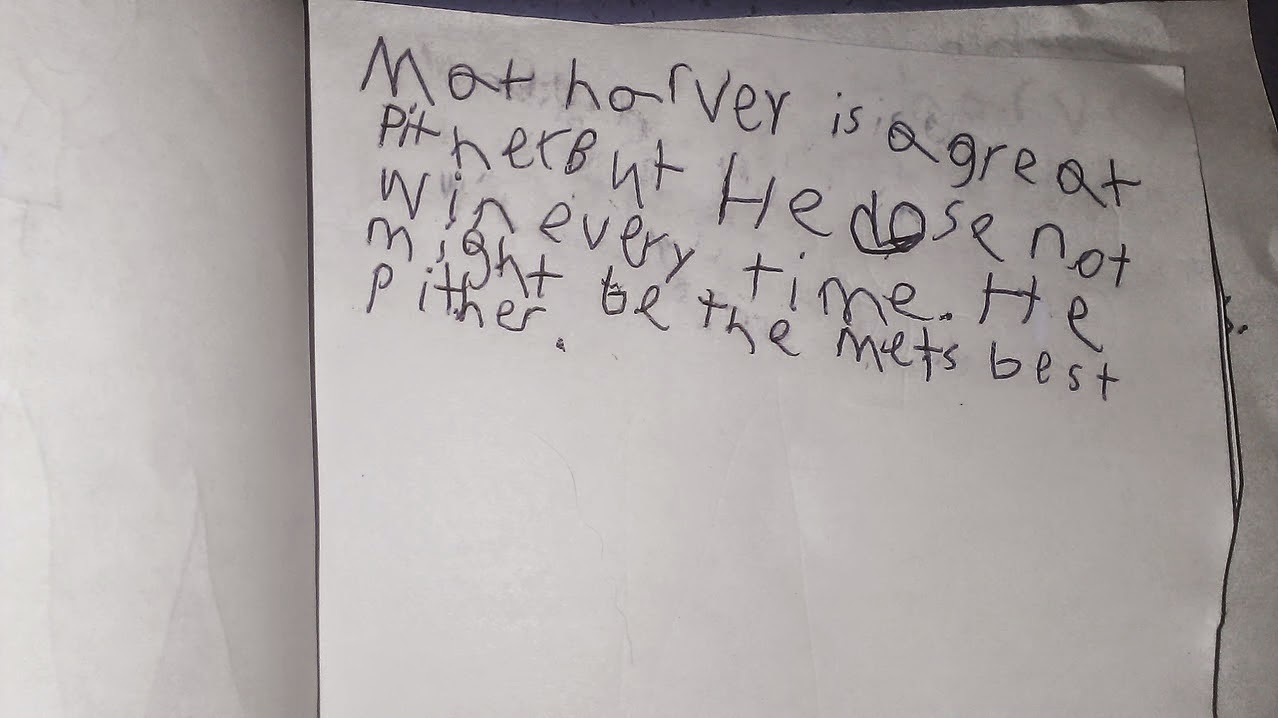 Mat harver is a great
pitherBut He dose not
Win every time. He
might be the mets best
Pither.